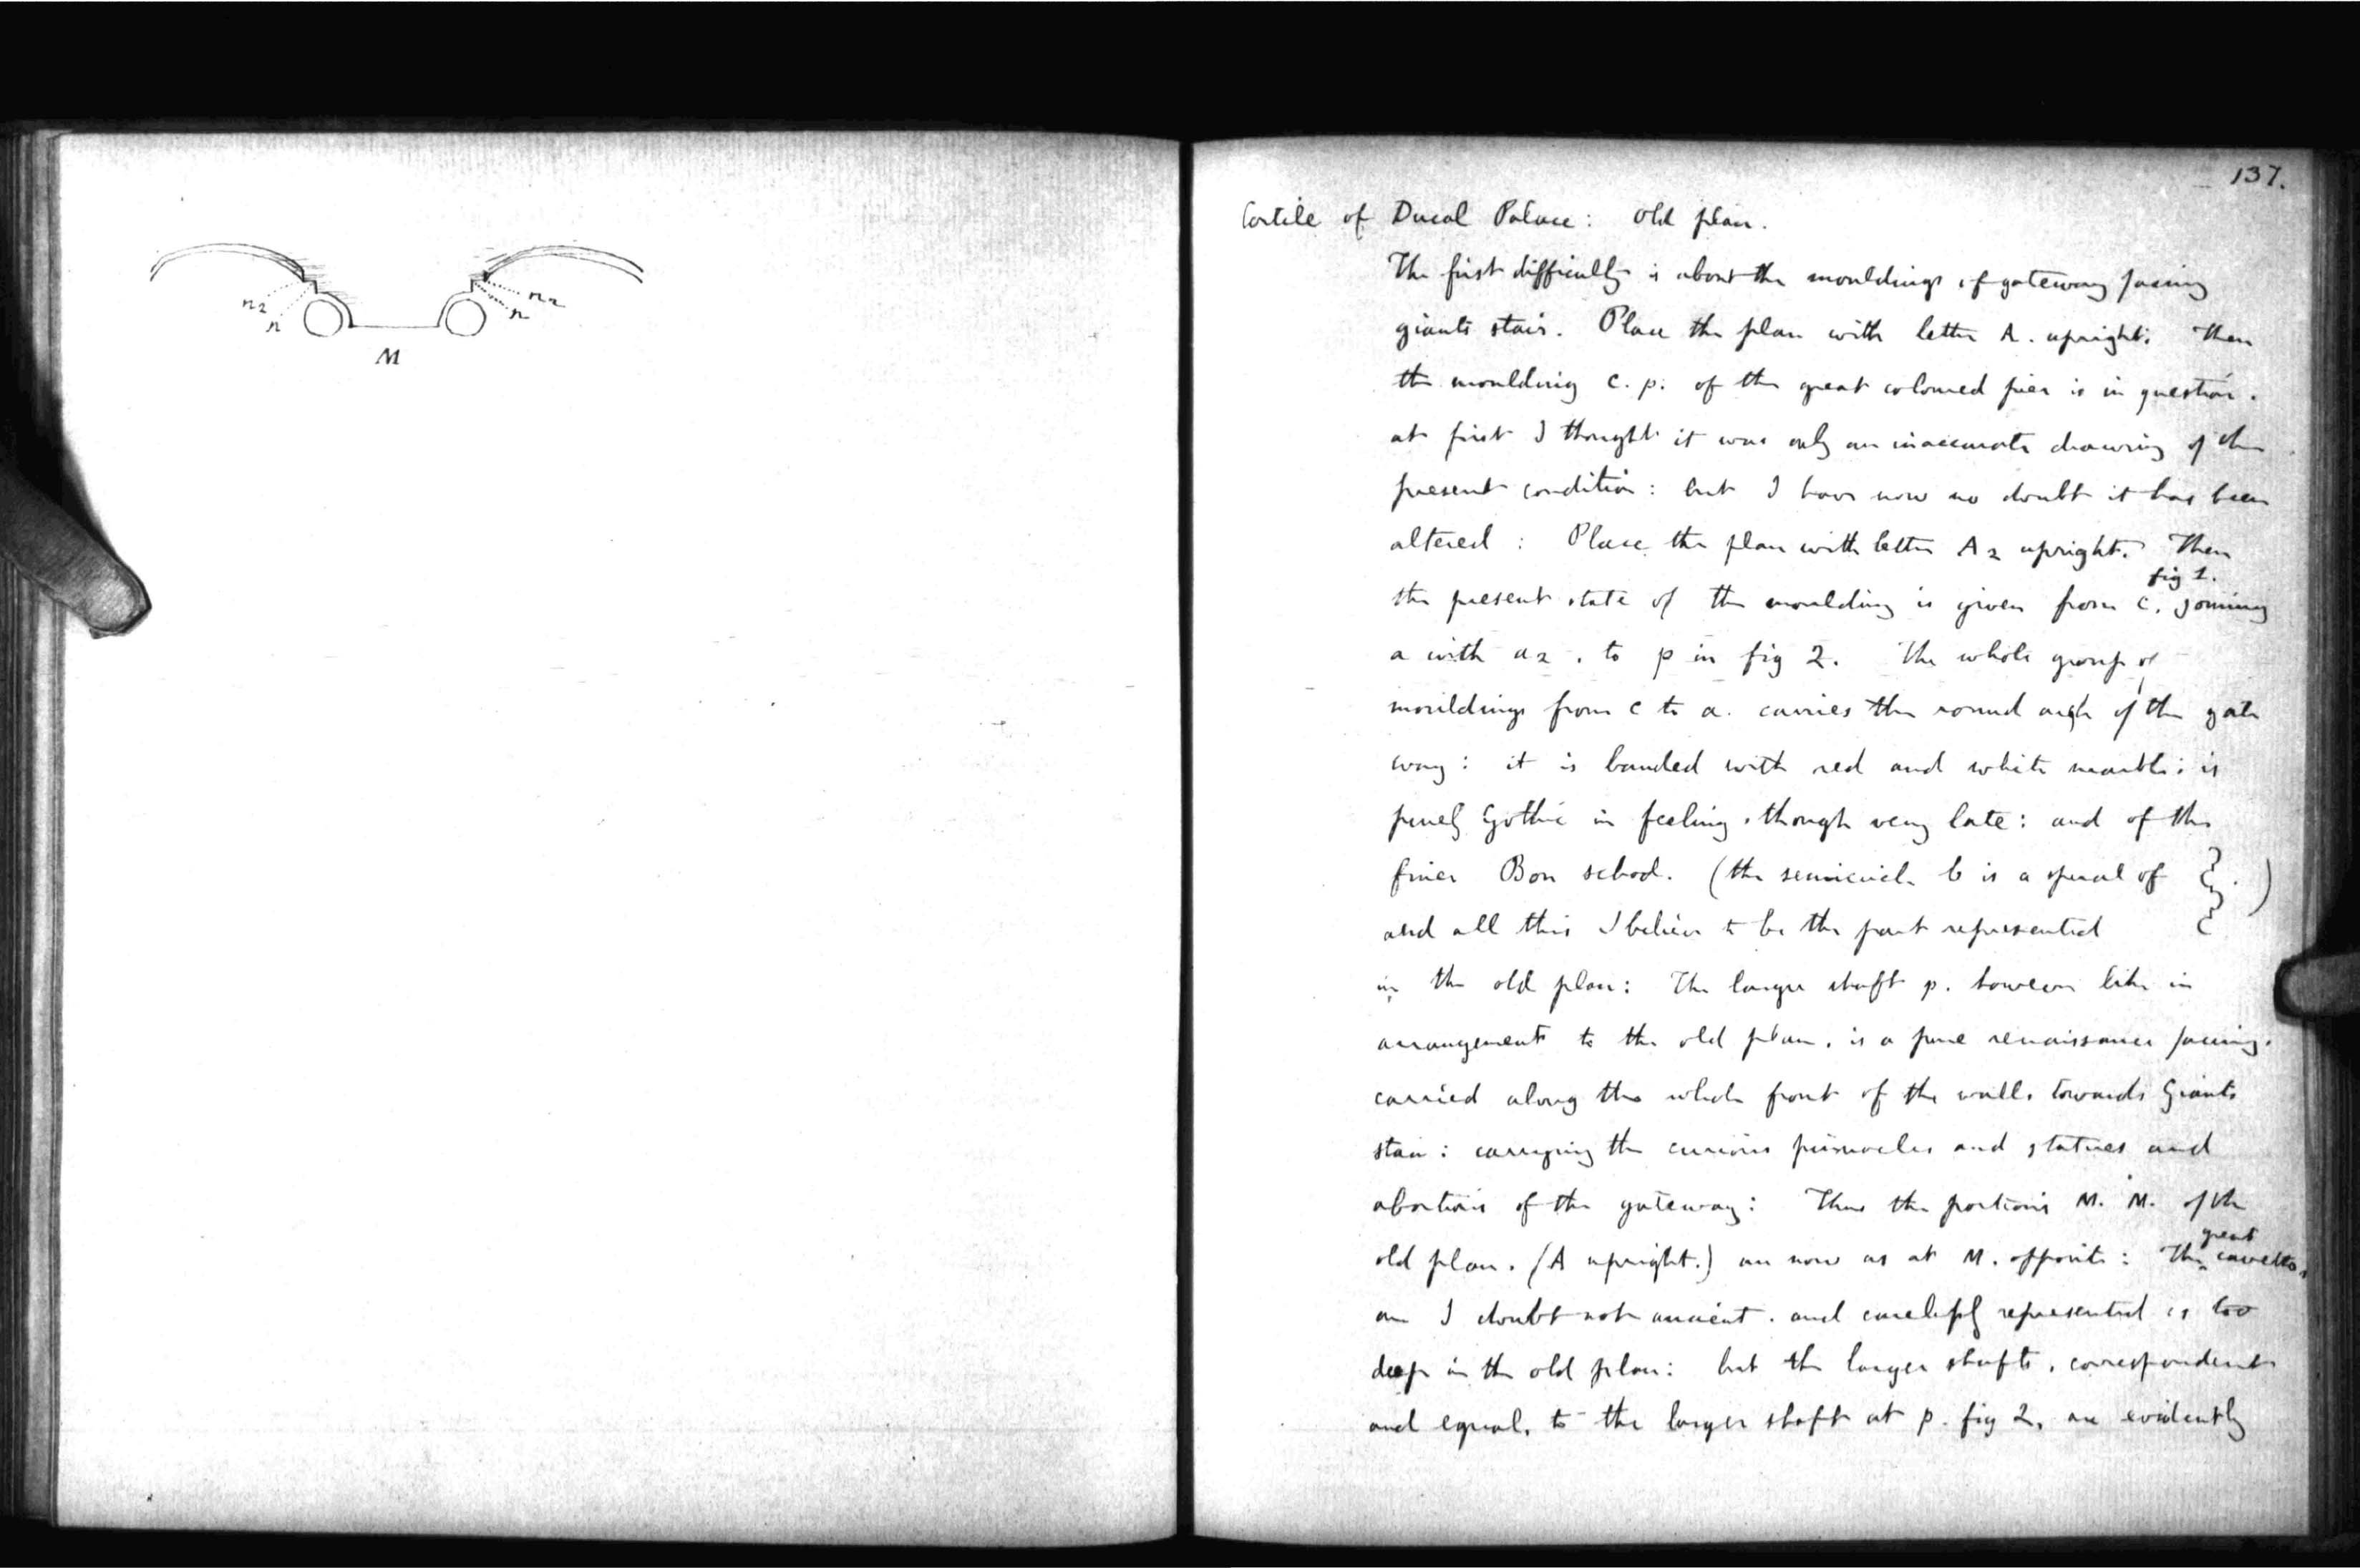 n2
n
n2
n
M
137.
Cortile of Ducal Palace: Old plan.
The first difficulty is about the mouldings of gateway facing
giants stair. Place the plan with letter A. upright: Then
the moulding c. p. of the great coloured pier is in question.
at first I thought it was only an inaccurate drawing of the
present condition: but I have now no doubt it has been
altered: Place the plan with letter A2 upright. Then
the present state of the moulding is given from c, fig 1. joining
a with a2, to p in fig 2. The whole group of
mouldings from c to a. carries the round arch of the gate
way: it is banded with red and white marble: is
purely Gothic in feeling, though very late: and of the
finer Bon school. (the semicircle b is a spiral of
and all this I believe to be the part represented
in the old plan: The larger shaft p. however like in
arrangement to the old plan, is a pure renaissance facing.
carried along the whole front of the walls towards Giants
stair: carrying the curious pinnacles and statues and
abortions of the gateway: Thus the portions M. M. of the
old plan. (A upright.) are now as at M. opposite: The great cavettos,
are I doubt not ancient. and carelessly represented as too
deep in the old plan: but the larger shafts, correspondent
and equal, to the larger shaft at p. fig 2, are evidently